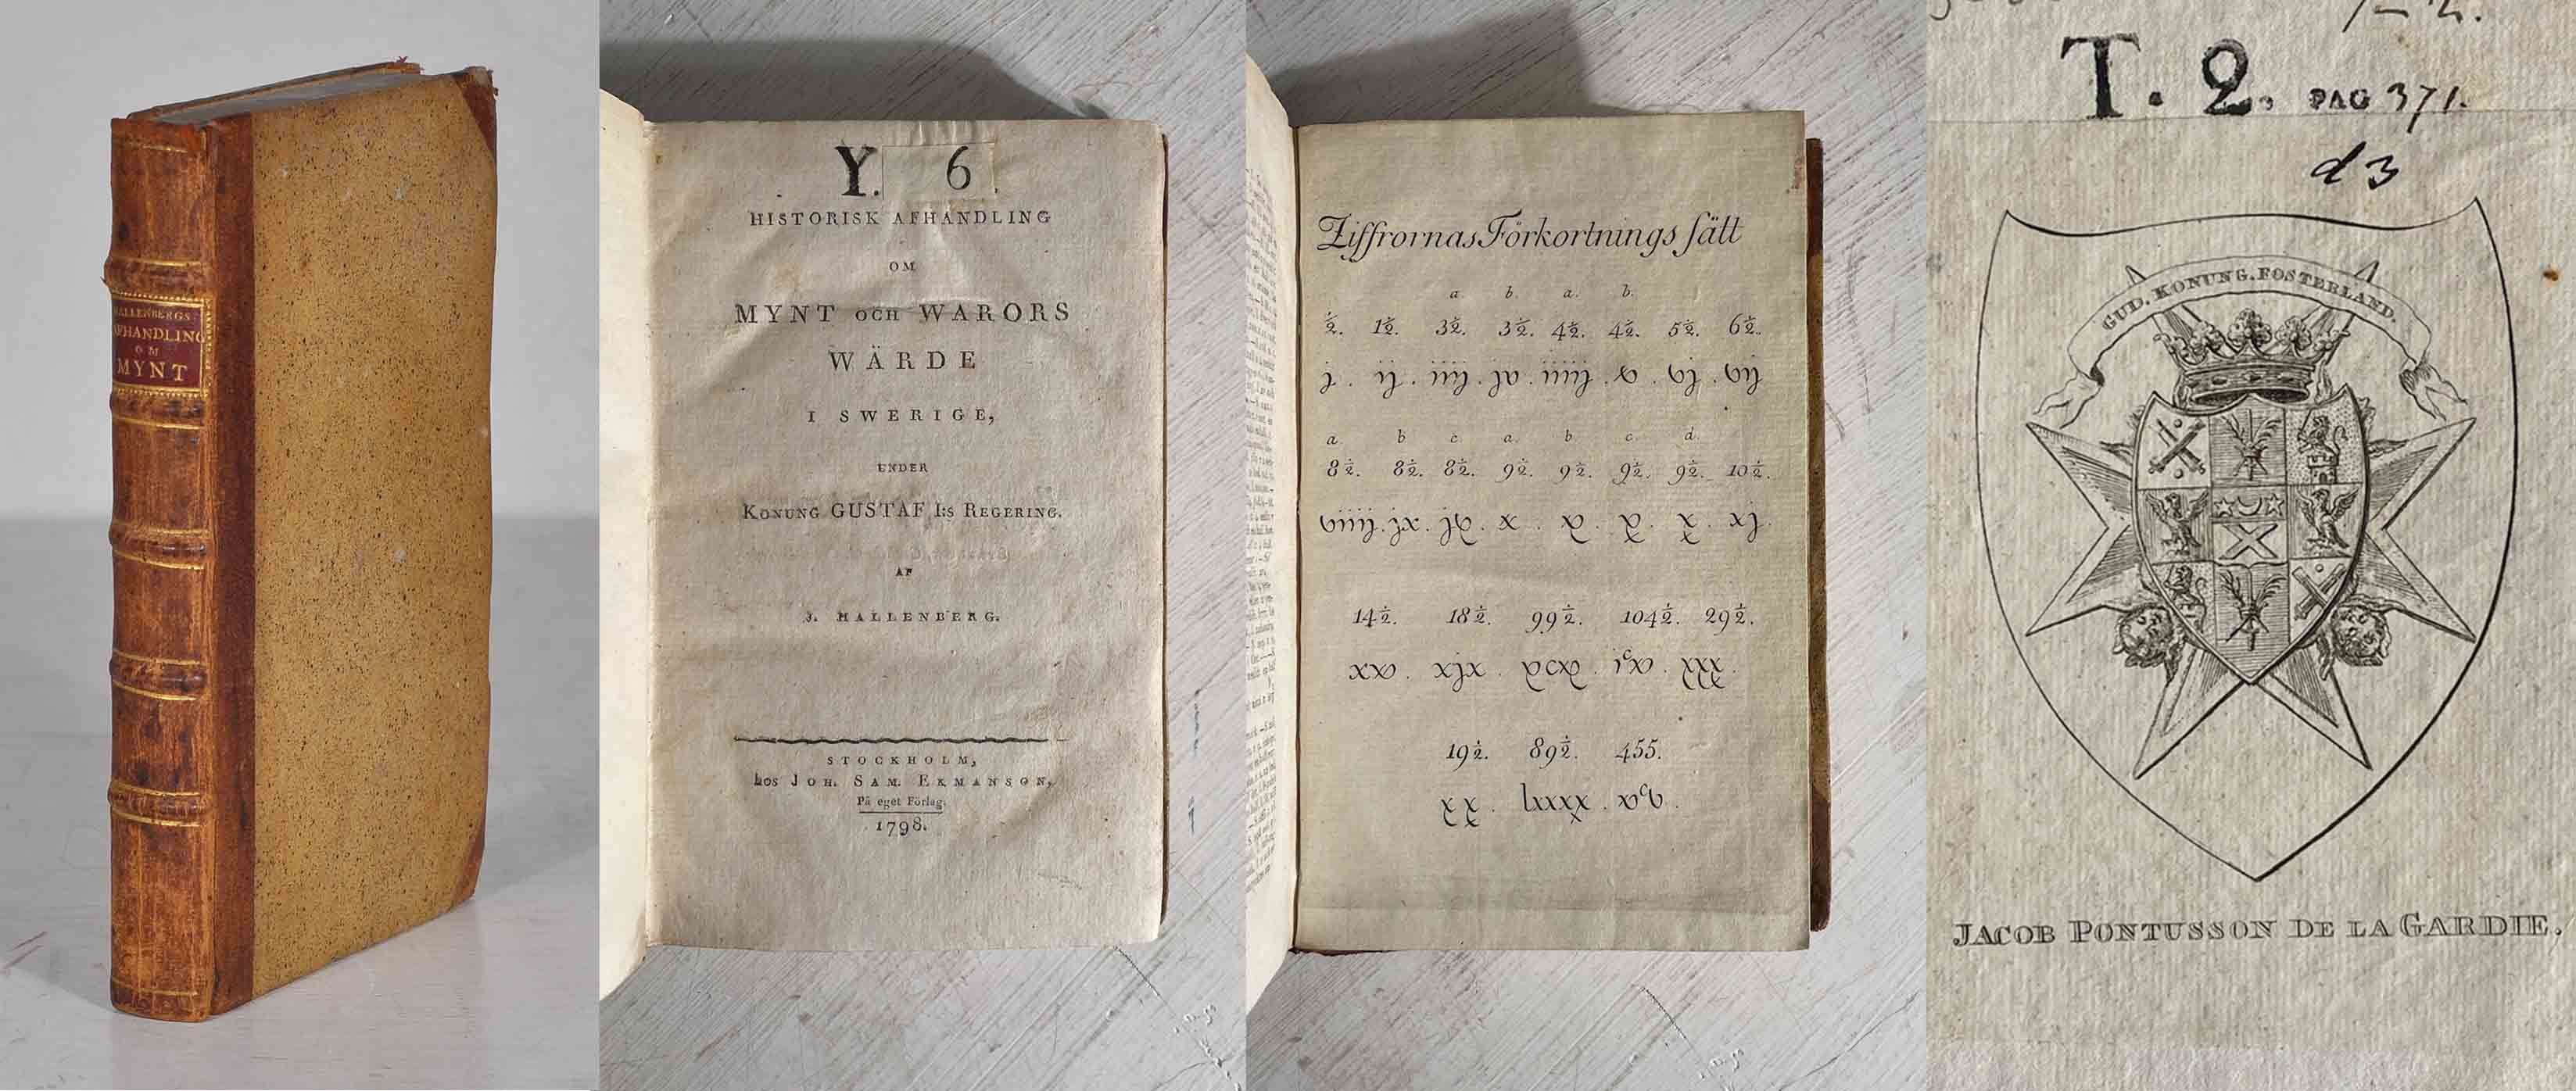 HALLENBERGS
AFHANDLING
OM
MYNT
Y. 6
HISTORISK AFHANDLING
OM
MYNT OCH WARORS
WÄRDE
I SWERIGE,
UNDER
KONUNG GUSTAF I:S REGERING.
AF
J. HALLENBERG.
STOCKHOLM,
hos JOH. SAM. EKMANSON,
På eget Förlag.
1798.
Ziffrornas Förkortnings sätt
a. b. a. b.
½. 1½. 3½. 3½. 4½. 4½. 5½. 6½.
a. b c. a. b c. d.
8½. 8½. 8½. 9½. 9½. 9½. 9½. 10½.
14½. 18½. 99½. 104½. 29½.
19½. 89½. 455.
T. 2. PAG 371.
d3
GUD. KONUNG. FOSTERLAND.
JACOB PONTUSSON DE LA GARDIE.